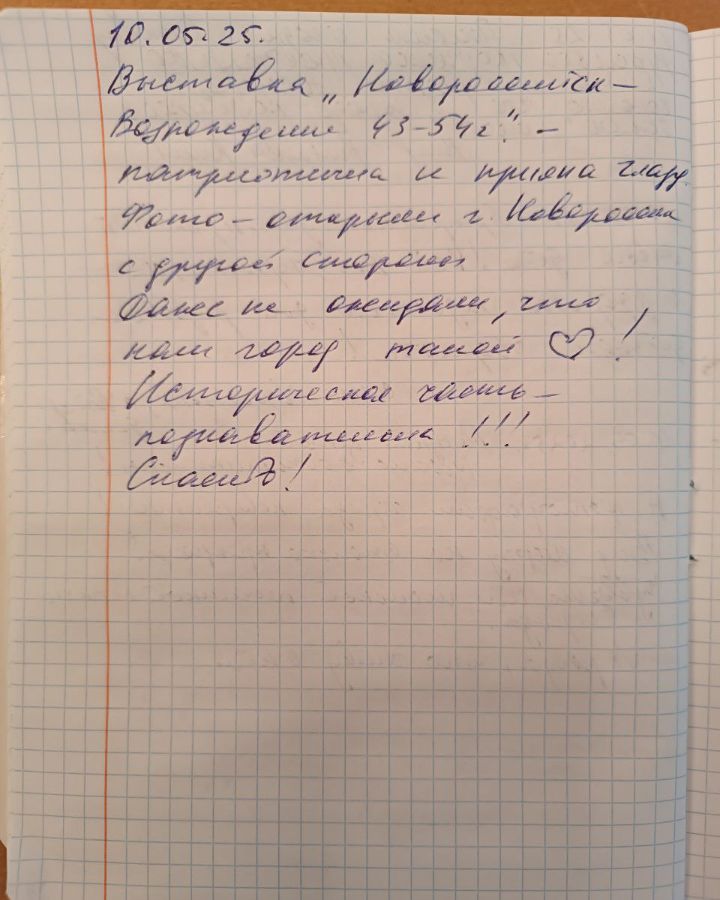 10.05.25.
Выставка „Новороссийск –
Возрождение 43-54г." –
патриотична и приятна глазу.
Фото – открыли г. Новороссийск
с другой стороны
Даже не ожидали, что
наш город такой ♡!
Историческая часть –
познавательна!!!
Спасибо!